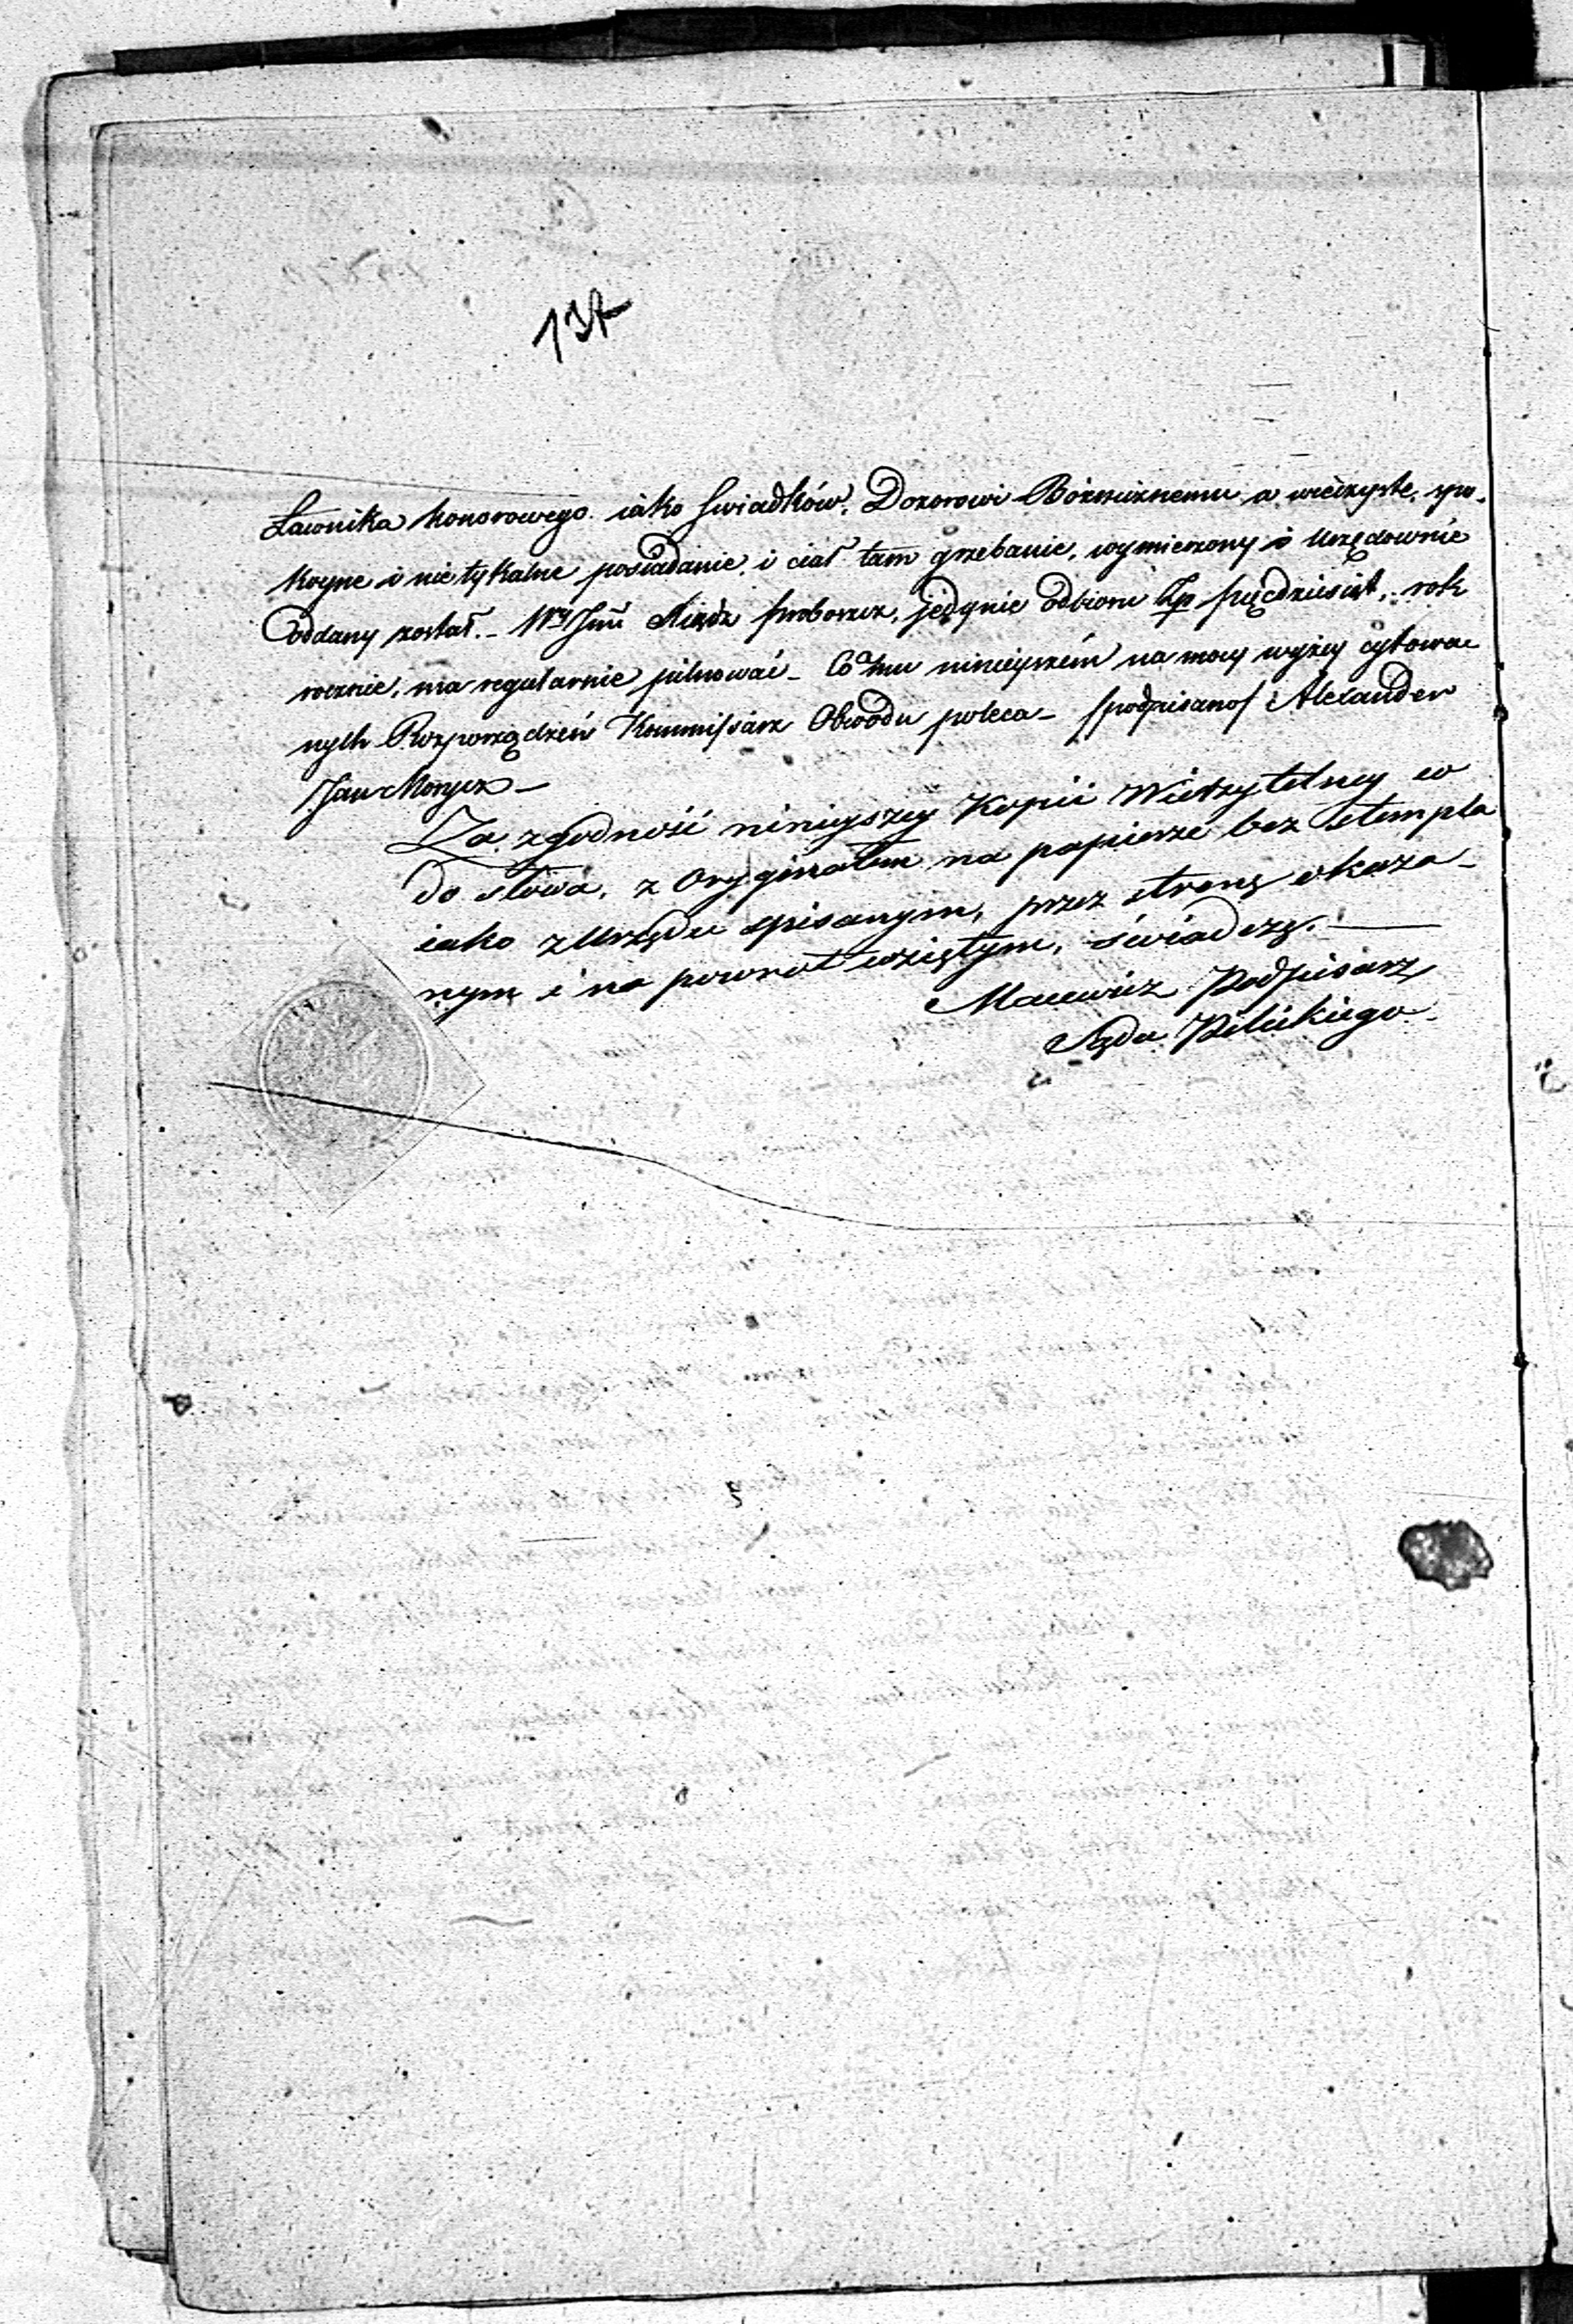 137
Ławnika honorowego iako Swiadków, Dozorowi Bóżnicznemu a wieczyste, spo-
koyne i nietykalne posiadanie, i ciał tam grzebanie, wymierzony i Urzędownie
Oddany został. – Wny Jmć Xiądz proboszcz, jedynie odbioru Zp pięćdziesiąt, rok
rocznie, ma regularnie pilnować – Co mu ninieyszém na mocy wyżey cytowa
nych Rozporządzeń Kommissarz Obwodu poleca – /podpisano/ Alexander
Jan Morycz –
Za zgodność ninieyszey Kopii Wierzytelney w
do słowa, z Oryginałem na papierze bez stempla
iako z Urzędu spisanym, przez stronę okaza-
nym i na powrót wziętym, świadczę. —
Macewicz Podpisarz
Sądu Pilickiego